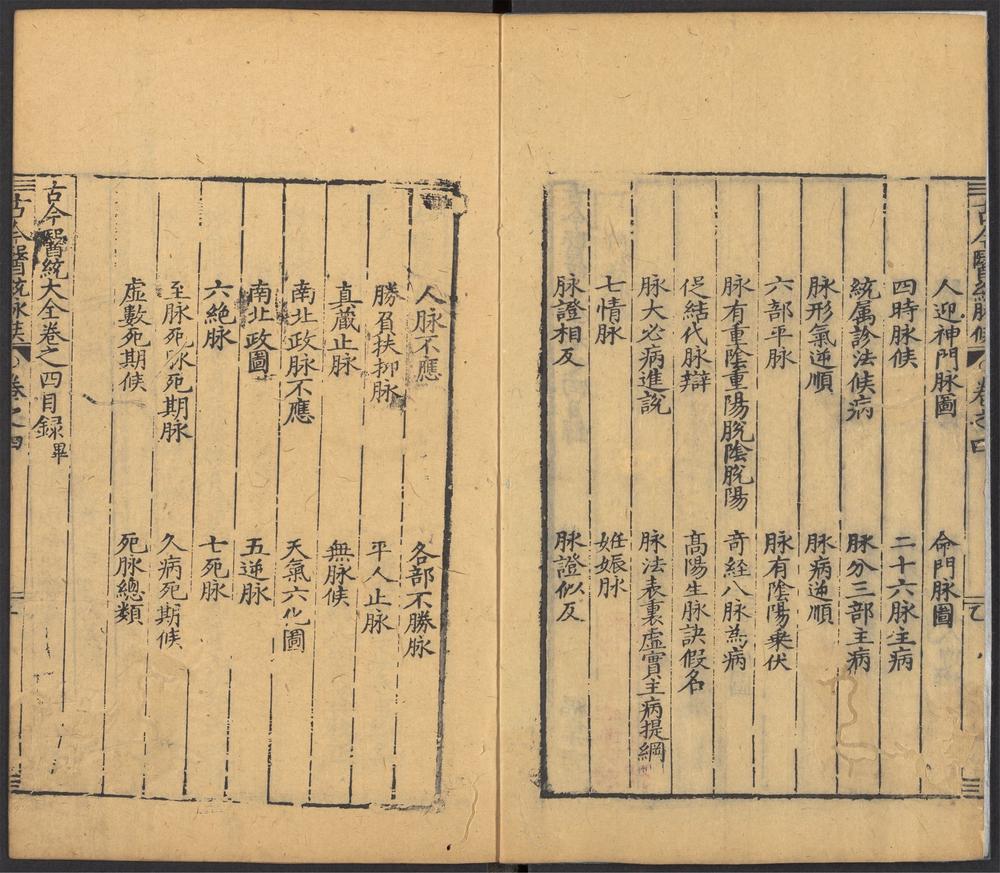 古今醫統脉候 卷之四
人迎神門脉圖 命門脉圖
四時脉候 二十六脉主病
統属診法候病 脉分三部主病
脉形氣逆順 脉病逆順
六部平脉 脉有陰陽乗伏
脉有重陰重陽脫陰脫陽 竒經八脉為病
促結代脉辯 髙陽生脉訣假名
脉大必病進說 脉法表裏虛實主病提綱
七情脉 姙娠脉
脉證相反 脉證似反
人脉不應 各部不勝脉
勝負扶抑脉 平人止脉
真蔵止脉 無脉候
南北政脉不應 天氣六化圖
南北政圖 五逆脉
六絶脉 七死脉
至脉死脉死期脉 久病死期候
虛數死期候 死脉總類
古今醫統大全卷之四目録畢
古今醫統脉候 卷之四